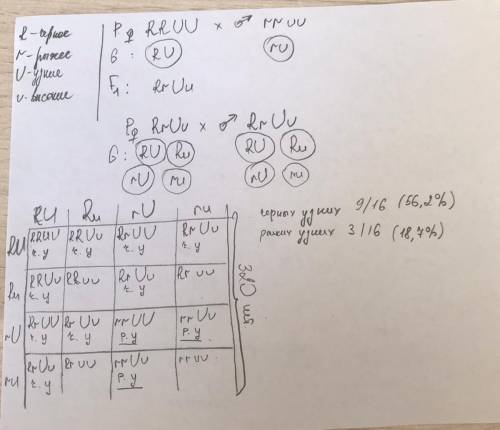 R - черное
r - рыжее
U - удкие
u - высокие
P ♀ RRUU × ♂ rruu
G: RU ru
F1: RrUu
P ♀ RrUu × ♂ RrUu
G: RU Ru RU Ru
rU ru rU ru
RU Ru rU ru
RU RRUU RRUu RrUU RrUu
ч. у ч. у ч. у ч. у
Ru RRUu RRuu RrUu Rr uu
ч. у ч. у
rU RrUU RrUu rrUU rrUu
ч. у ч. у р. у р. у
ru RrUu Rr uu rrUu rruu
ч. у р. у
черных удких 9/16 (56,2%)
рыжих удких 3/16 (18,7%)